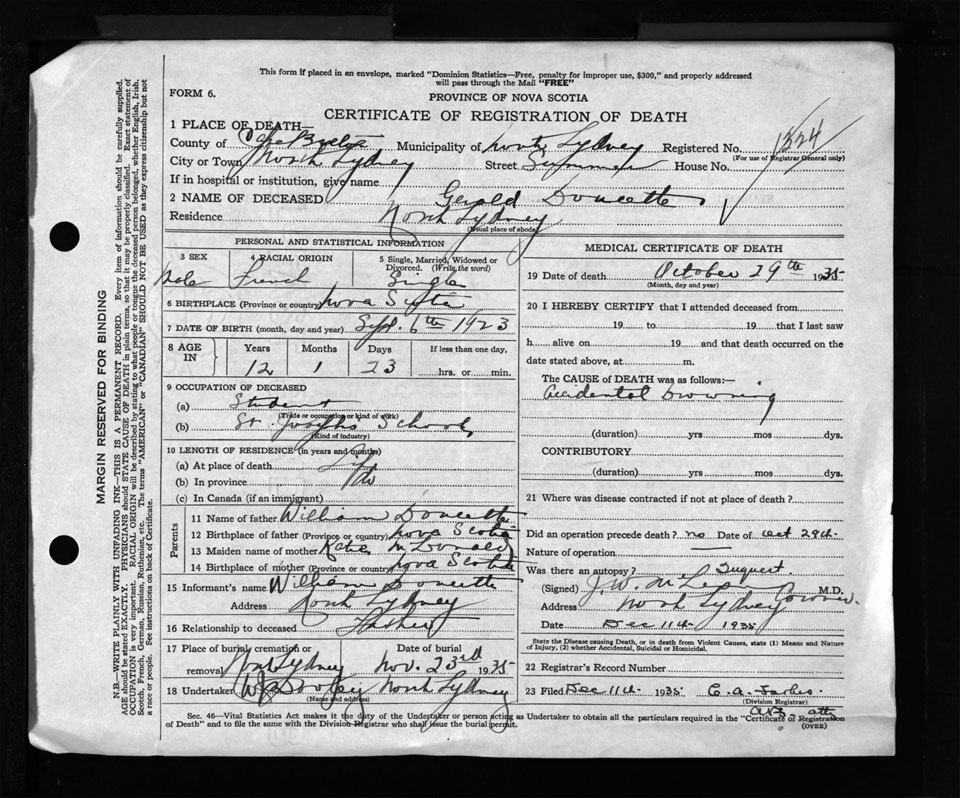 This form if placed in an envelope, marked "Dominion Statistics—Free, penalty for improper use, $300," and properly addressed
will pass through the Mail "FREE"
FORM 6.
PROVINCE OF NOVA SCOTIA
CERTIFICATE OF REGISTRATION OF DEATH
1 PLACE OF DEATH—
County of Cape Breton Municipality of North Sydney Registered No. 1324
(For use of Registrar General only)
City or Town North Sydney Street Seymour House No.
If in hospital or institution, give name
2 NAME OF DECEASED Gerald Doucette
Residence North Sydney
(Usual place of abode)
PERSONAL AND STATISTICAL INFORMATION
3 SEX 4 RACIAL ORIGIN 5 Single, Married, Widowed or Divorced. (Write the word)
Male French Single
6 BIRTHPLACE (Province or country) Nova Scotia
7 DATE OF BIRTH (month, day and year) Sept. 6th 1923
8 AGE IN Years Months Days If less than one day,
12 1 23 hrs. or min.
9 OCCUPATION OF DECEASED
(a) Student
(Trade or occupation or kind of work)
(b) St. Josephs School
(Kind of industry)
10 LENGTH OF RESIDENCE (in years and months)
(a) At place of death Life
(b) In province do
(c) In Canada (if an immigrant)
Parents
11 Name of father William Doucette
12 Birthplace of father (Province or country) Nova Scotia
13 Maiden name of mother Katie McDonald
14 Birthplace of mother (Province or country) Nova Scotia
15 Informant's name William Doucette
Address North Sydney
16 Relationship to deceased Father
17 Place of burial, cremation or removal Date of burial
North Sydney Nov. 23rd 1935
18 Undertaker North Sydney
(Name and address)
MEDICAL CERTIFICATE OF DEATH
19 Date of death October 29th 1935
(Month, day and year)
20 I HEREBY CERTIFY that I attended deceased from
19 to 19 that I last saw
h alive on 19 and that death occurred on the
date stated above, at m.
The CAUSE of DEATH was as follows:—
Accidental Drowning
(duration) yrs mos dys.
CONTRIBUTORY
(duration) yrs mos dys.
21 Where was disease contracted if not at place of death?
Did an operation precede death? no Date of Oct 29th
Nature of operation —
Was there an autopsy? Inquest
(Signed) J.W. M.D.
Coroner
Address North Sydney
Date Dec 11th 1935
State the Disease causing Death, or in death from Violent Causes, state (1) Means and Nature
of Injury, (2) whether Accidental, Suicidal or Homicidal.
22 Registrar's Record Number
23 Filed Dec 11th 1935 C. A.
(Division Registrar)
Sec. 46—Vital Statistics Act makes it the duty of the Undertaker or person acting as Undertaker to obtain all the particulars required in the "Certificate of Registration
of Death" and to file the same with the Division Registrar who shall issue the burial permit.
(OVER)
MARGIN RESERVED FOR BINDING
N.B.—WRITE PLAINLY WITH UNFADING INK—THIS IS A PERMANENT RECORD. Every item of information should be carefully supplied.
AGE should be stated EXACTLY. PHYSICIANS should STATE CAUSE OF DEATH in plain terms, so that it may be properly classified. Exact statement of
OCCUPATION is very important. RACIAL ORIGIN will be described by stating to what people or tongue the deceased person belonged, whether English, Irish,
Scotch, French, German, Russian, Ruthenian, etc. The terms "AMERICAN" or "CANADIAN" SHOULD NOT BE USED as they express citizenship but not
a race or people. See instructions on back of Certificate.